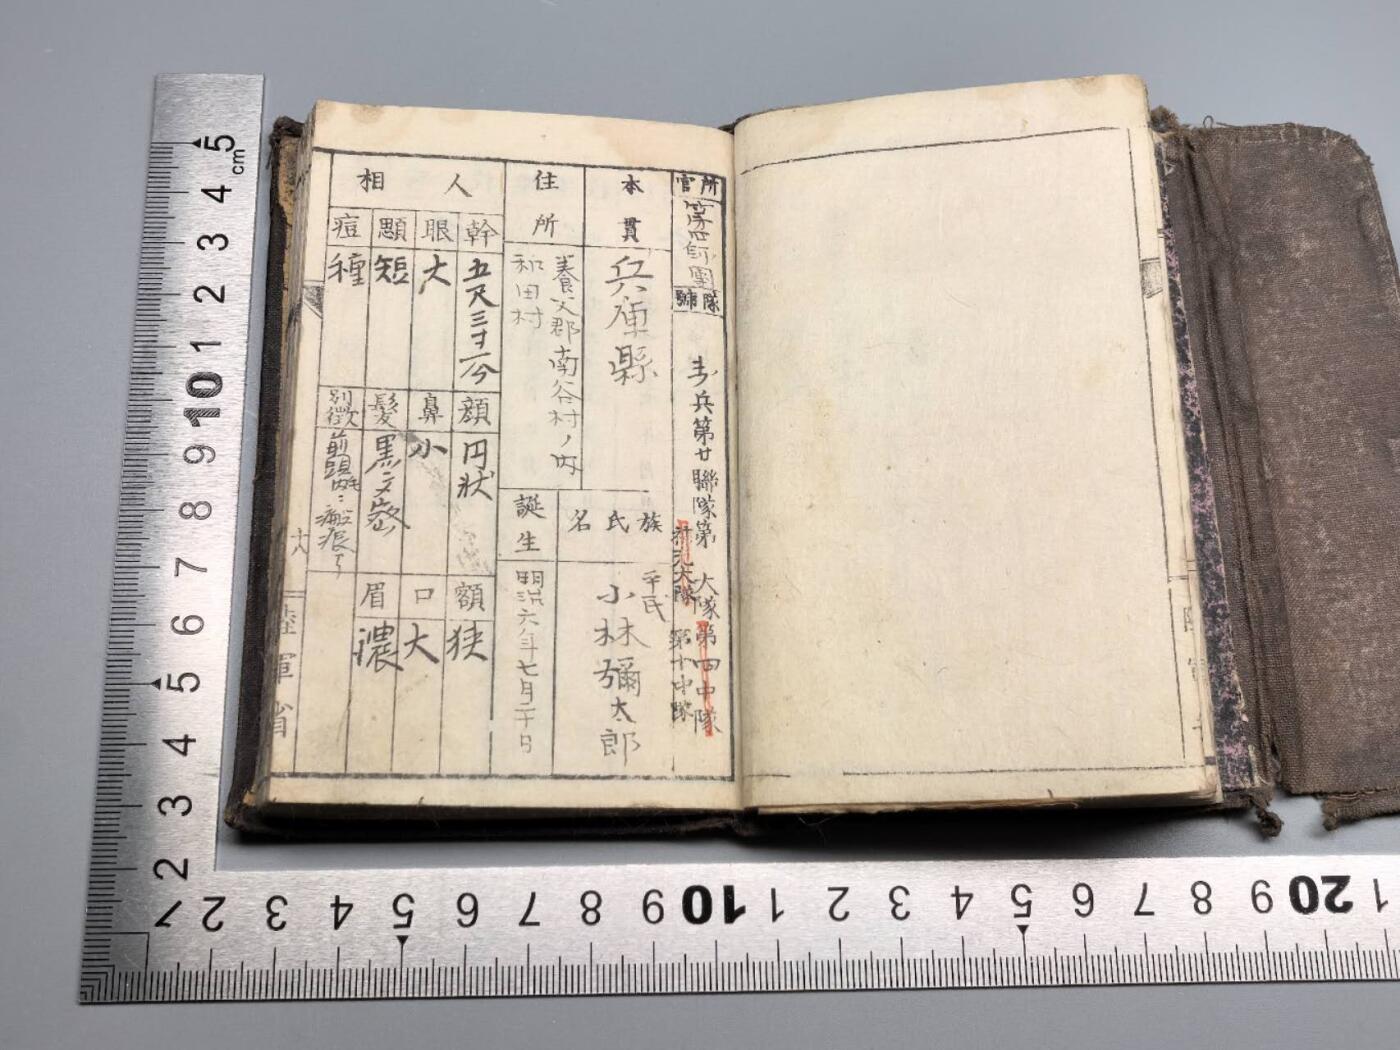 所官
第 師團
隊號
歩兵第廿聯隊第 大隊第四中隊
第三大隊 第十中隊
本貫
兵庫縣
住所
養父郡南谷村ノ内
和田村
族氏名
平民
小林彌太郎
誕生
明治六年七月二十日
人相
幹
五尺三寸一分
顔
円状
額
狭
眼
大
鼻
小
口
大
顋
短
髪
黒ク密
眉
濃
痘
種
別徴
瘢痕アリ
十八
陸軍省
5
cm
3
2
1
10
9
8
7
6
5
4
3
2
2
3
4
5
6
7
8
9
10
1
2
3
4
5
6
7
8
9
20
1